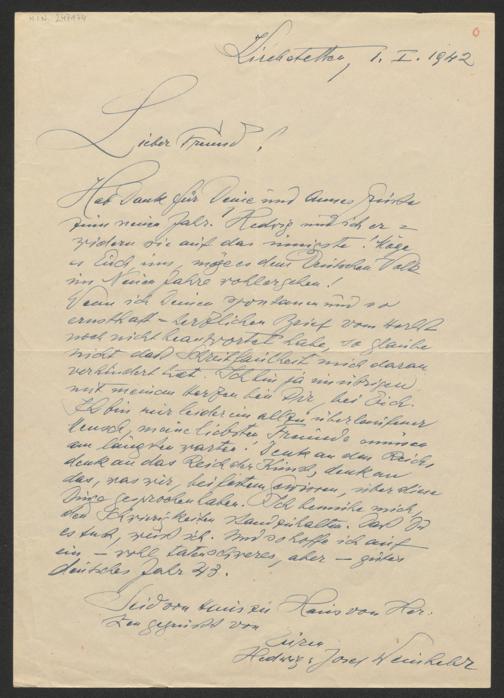 H.I.N. 247474
0
Kirchstetten, 1. I. 1942
Lieber Freund!
Hab Dank für Deine und Annes Grüße
zum neuen Jahr. Hedwig und ich er=
widern sie auf das innigste! Möge
es Euch und uns, möge es dem Deutschen Volk
im Neuen Jahre vollergehen!
Wenn ich Deinen spontanen und so
ernsthaft-herzlichen Brief vom Herbst
noch nicht beantwortet habe, so glaube
nicht daß Schreibfaulheit mich daran
verhindert hat. Ich bin ja im übrigen
mit meinem Herzen bei Dir, bei Euch.
Ich bin nur leider ein allzu überlaufener
Mensch, meine liebsten Freunde müssen
am längsten warten. Denk an das Reich,
denk an das Reich der Kunst, denk an
das, was wir, bei festem, über diese
Dinge gesprochen haben. Ich bemühe mich,
den Schwierigkeiten standzuhalten. Daß Du
es tust, weiß ich. Und so hoffe ich auf
ein – voll tatenschweres, aber – gutes
deutsches Jahr 43.
Seid von Haus zu Haus von Her-
zen gegrüßt von
Euren
Hedwig u. Josef Weinheber